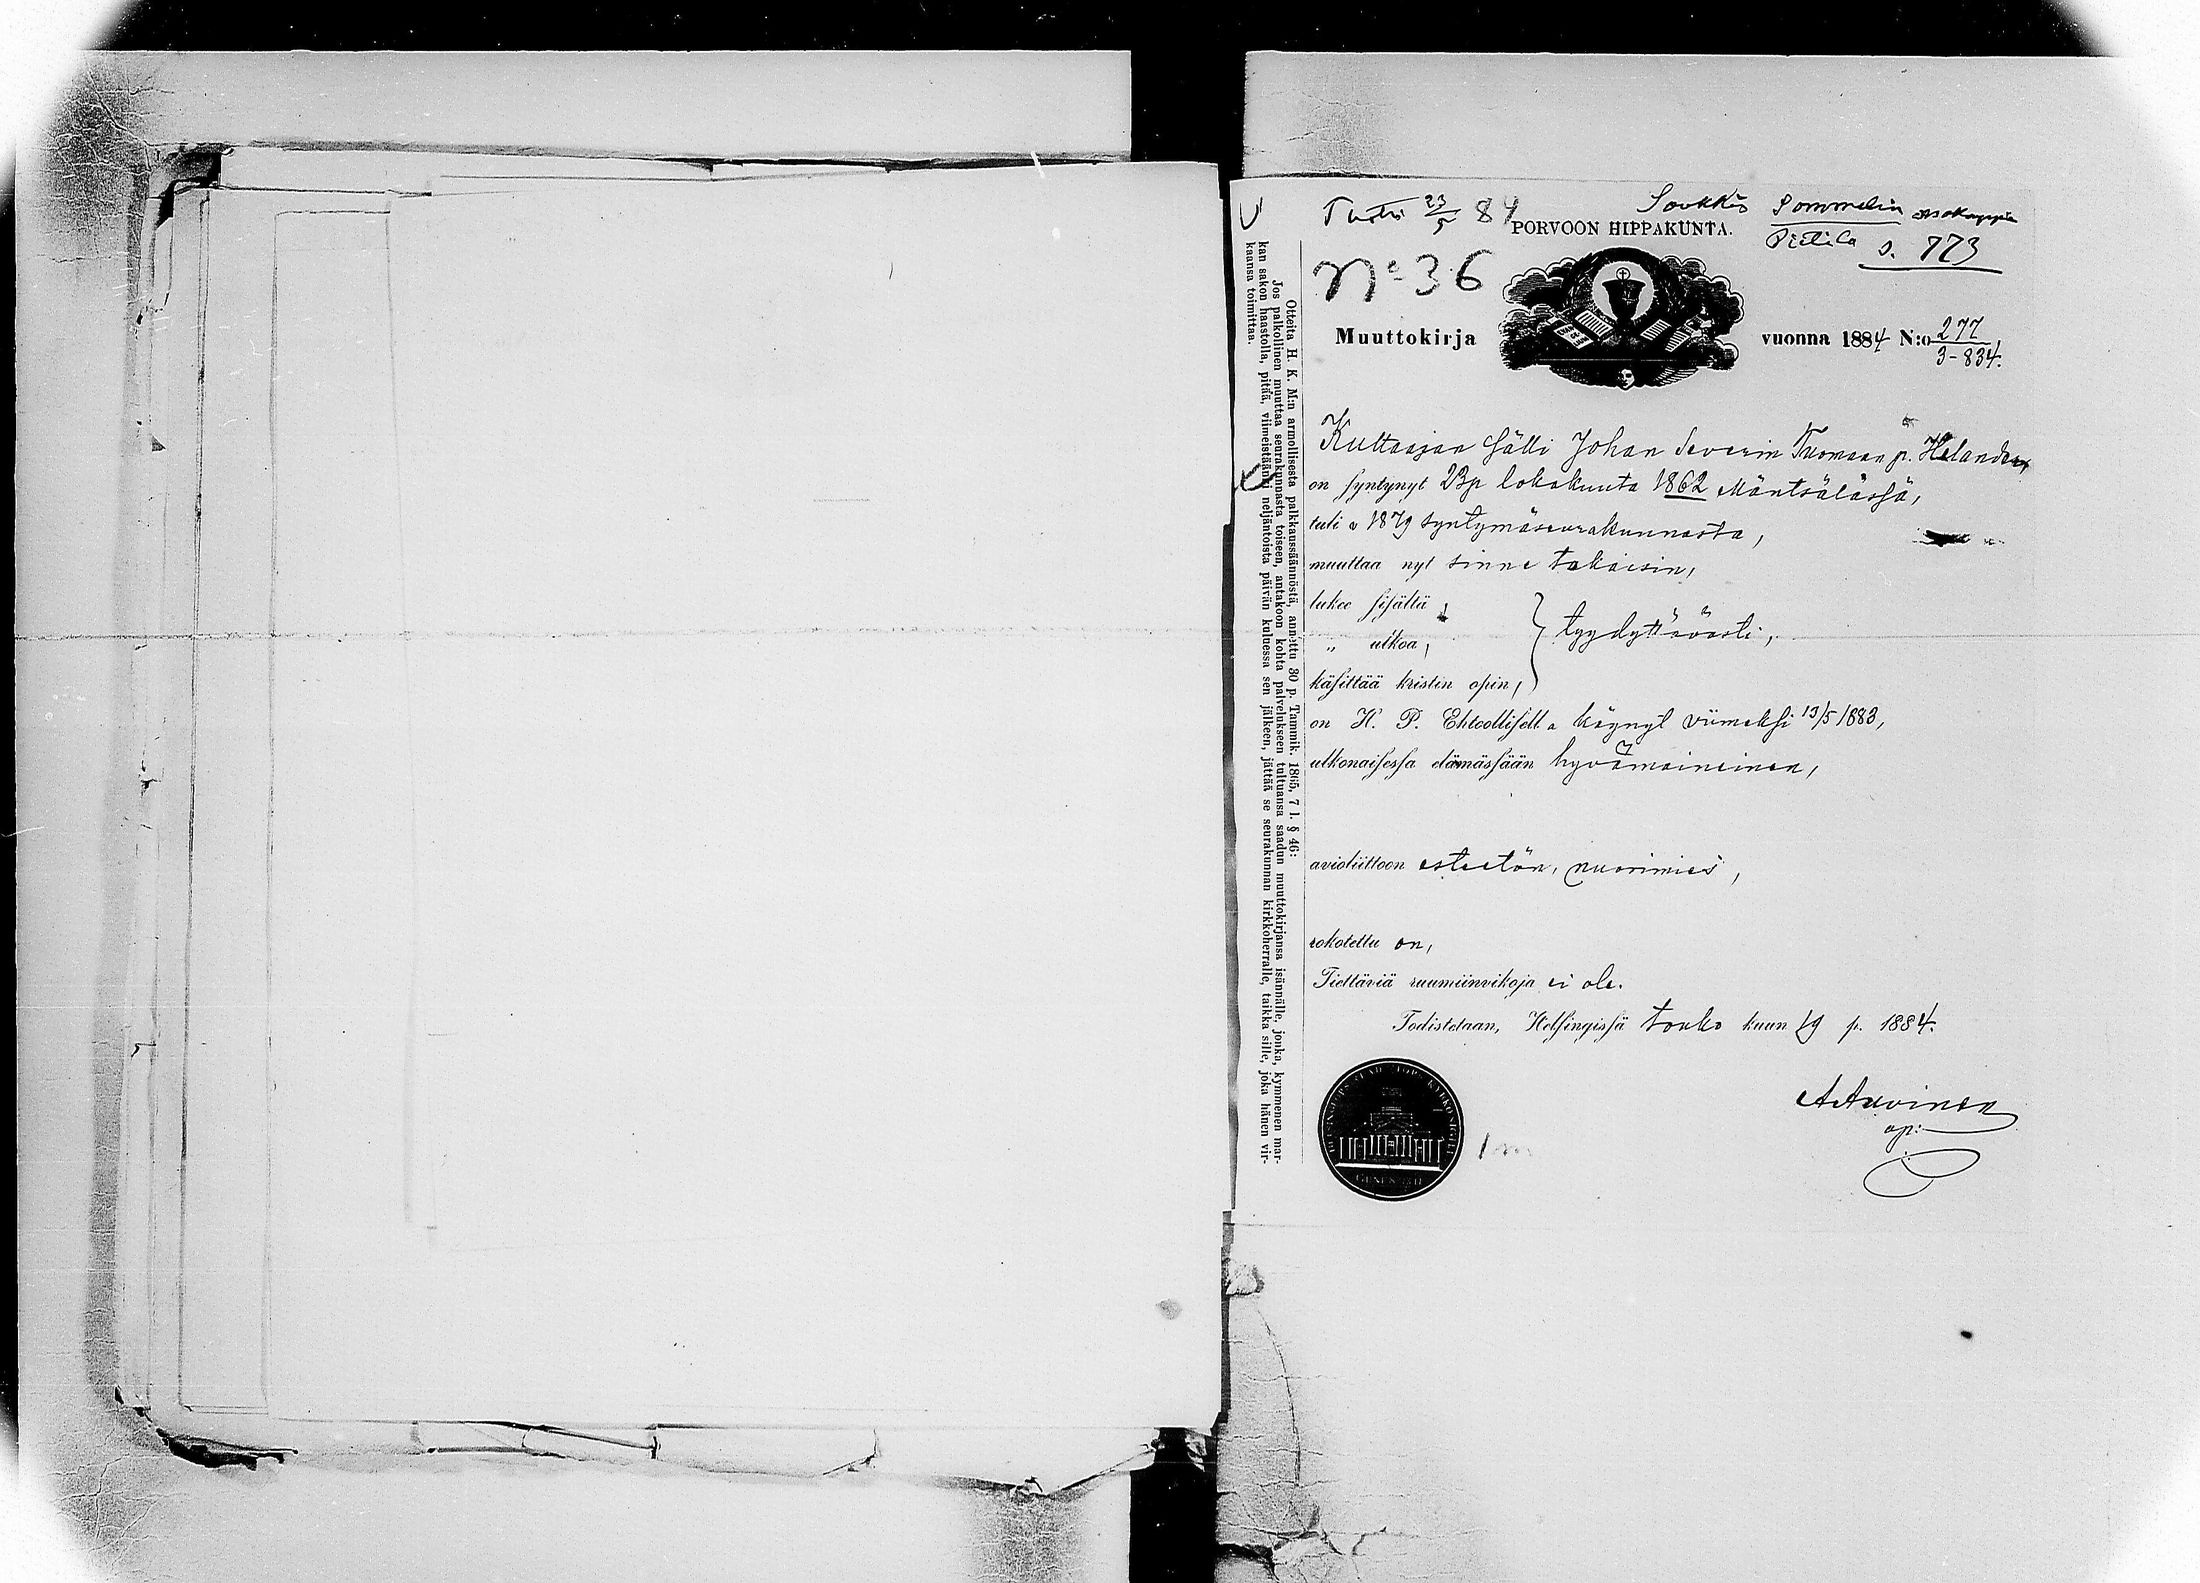 Tuotu 23/5 84
Soukkio Sommelin
Pietilä s. 773
PORVOON HIPPAKUNTA.
No 36
Muuttokirja vuonna 1884 N:o 277/3-834.
Kultaajan sälli Johan Severin Tuomaan p. Helander,
on syntynyt 23 p lokakuuta 1862 Mäntsälässä,
tuli v 1879 syntymäseurakunnasta,
muuttaa nyt sinne takaisin,
lukee sisältä,
„ ulkoa, } tyydyttävästi,
käsittää kristin opin,
on H. P. Ehtoollisella käynyt viimeksi 13/5 1883,
ulkonaisessa elämässään hyvämaineinen,
avioliittoon esteetön, nuorimies,
rokotettu on,
Tiettäviä ruumiinvikoja ei ole.
Todistetaan, Helsingissä touko kuun 19 p. 1884.
A Auvinen
ap:
Otteita H. K. M:n armollisesta palkkaussäännöstä, annettu 30 p. Tammik. 1865, 7 l. § 46:
Jos palkollinen muuttaa seurakunnasta toiseen, antakoon kohta palvelukseen tultuansa saadun muuttokirjansa isännälle, jonka, kymmenen mar-
kan sakon haastolla, pitää, viimeistäänki neljäntoista päivän kuluessa sen jälkeen, jättää se seurakunnan kirkkoherralle, taikka sille, joka hänen vir-
kaansa toimittaa.